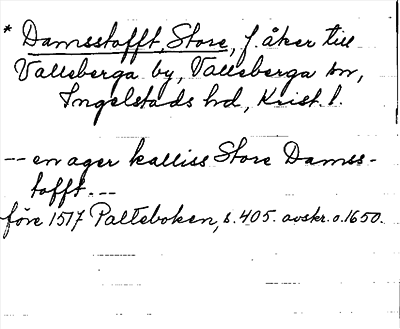 * Damsstofft, Store, f. åker till
Valleberga by, Valleberga sn,
Ingelstads hd, Krist. l.
-- en ager kalliss Store Damss-
tofft. --
före 1517 Palteboken, s. 405. avskr. o. 1650.